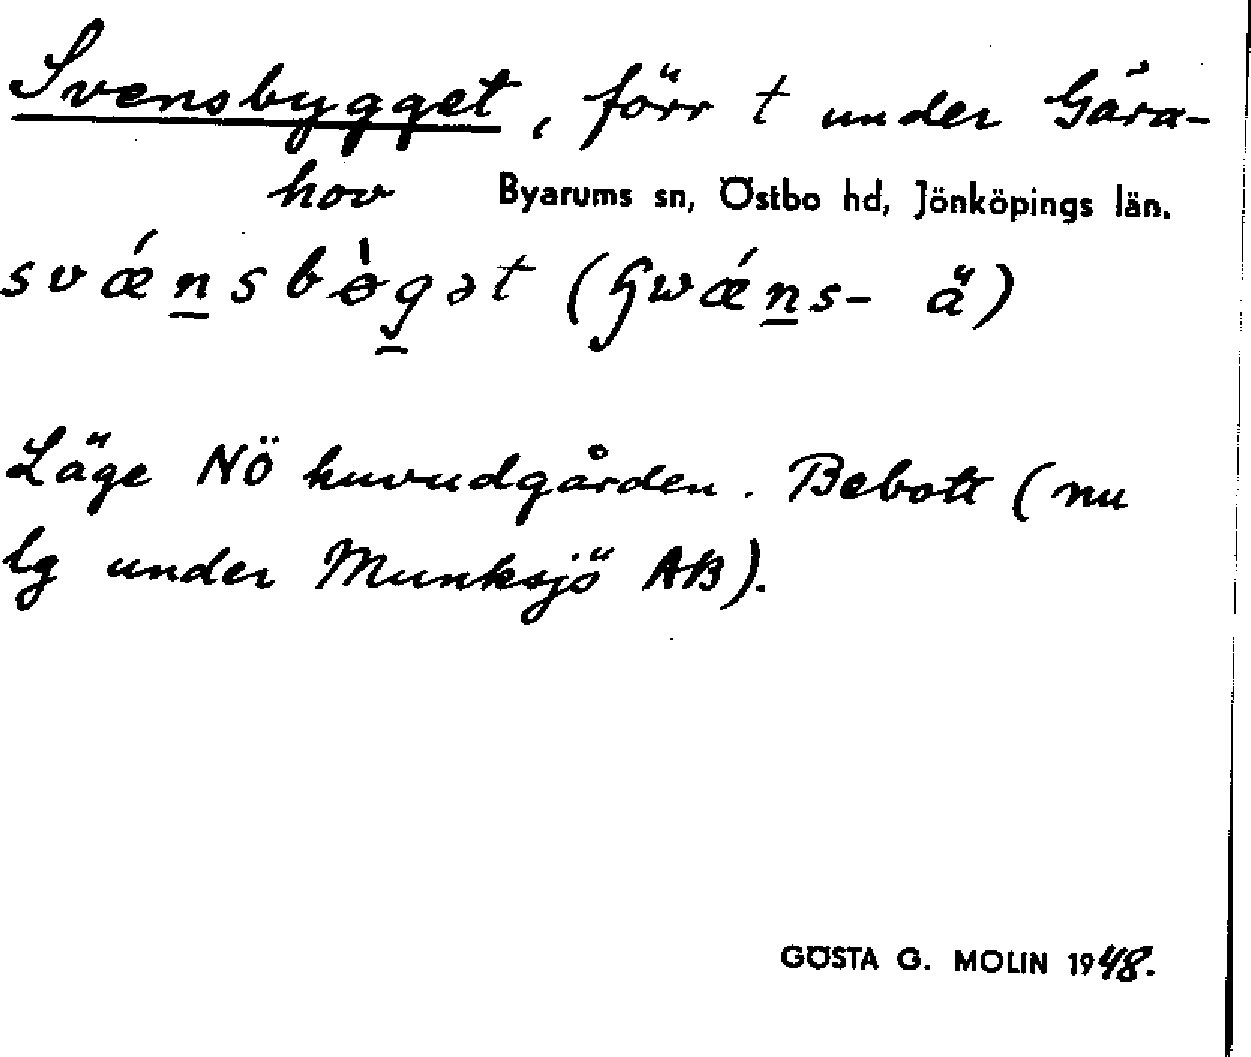 Svensbygget, förr t under Gåra-
hov Byarums sn, Östbo hd, Jönköpings län.
svǽn̲sbɵ̀g̲ət (ʃwǽn̲s- ä)
Läge NÖ huvudgården. Bebott (nu
lg under Munksjö AB).
GÖSTA G. MOLIN 1948.